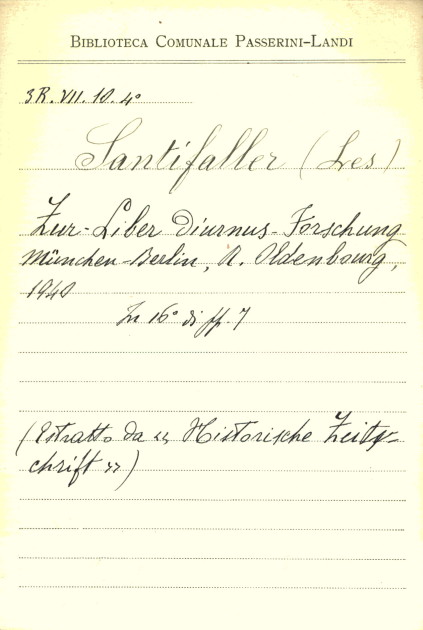 BIBLIOTECA COMUNALE PASSERINI-LANDI
3R. VII. 10. 4°
Santifaller (Les)
Zur-Liber Diurnus-Forschung
München-Berlin, R. Oldenbourg,
1940
In 16° di pp. 7
(Estratto da << Historische Zeits-
chrift >>)